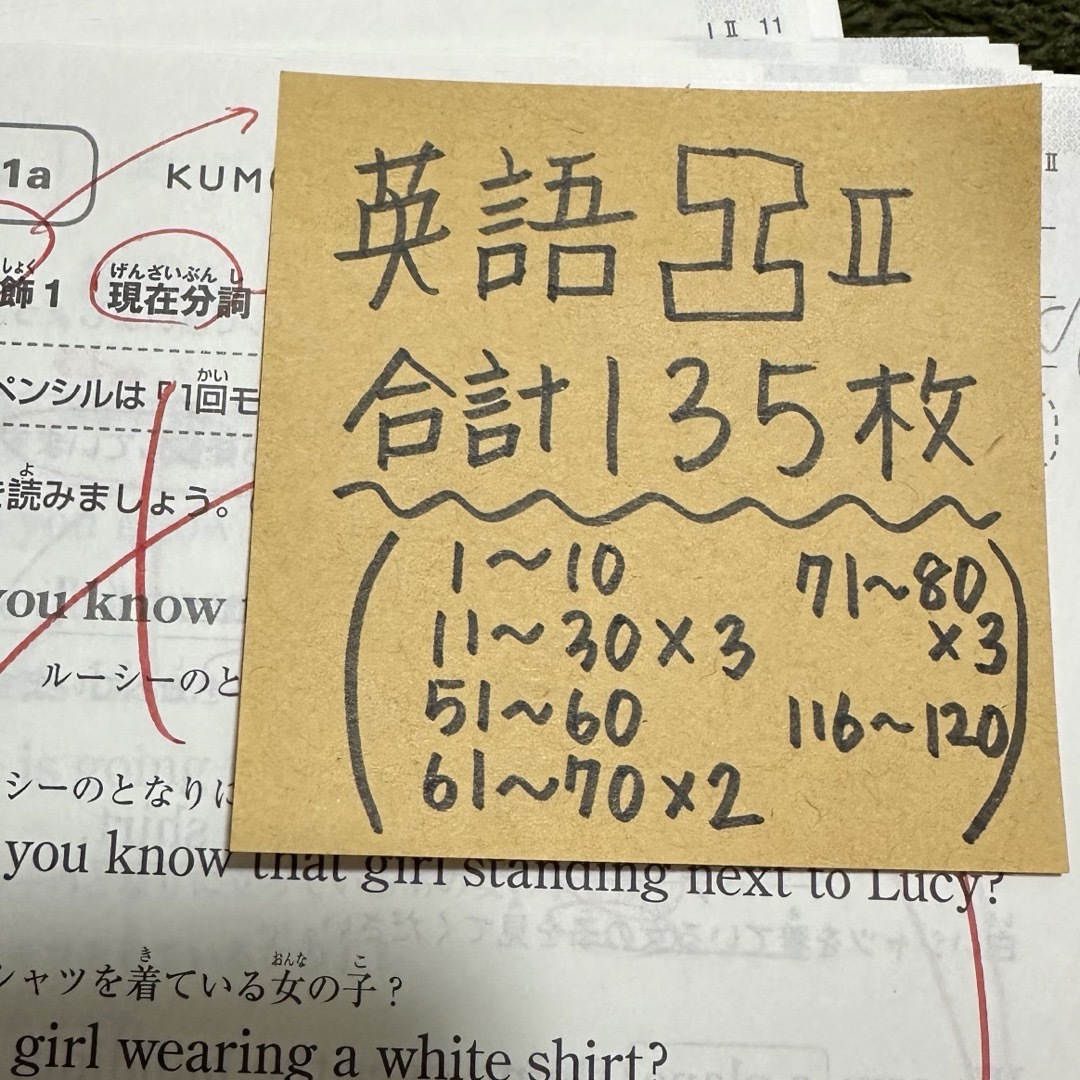 I Ⅱ 11
1a
KUM
Ⅱ
英語 I Ⅱ
しょく
飾1
げんざいぶんし
現在分詞
合計135枚
かい
ペンシルは「1回モ
よ
を読みましょう。
1～10
11～30×3
51～60
61～70×2
71～80
×3
116～120
you know
ルーシーのと
シーのとなりに
you know that girl standing next to Lucy?
き おんな こ
シャツを着ている女の子？
girl wearing a white shirt?